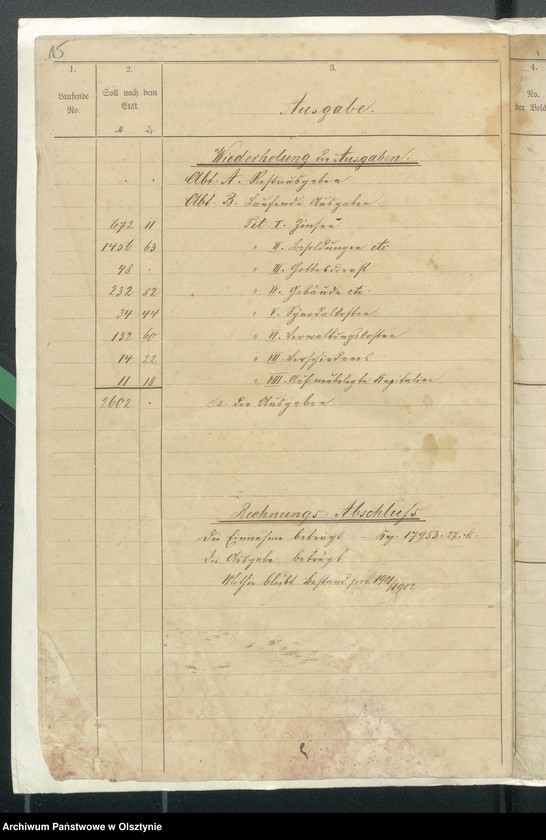 15
1. 2. 3. 4.
Laufende No. Soll nach dem Etat Ausgabe. No. der Belä
M ₰
Wiederholung der Ausgaben.
. . Abt. A. Restausgaben
Abt. B. Laufende Ausgaben
672 11 Tit. I. Zinsen
1456 63 " II. Besoldungen etc
48 . " III. Gottesdienst
232 82 " IV. Gebäude etc.
34 44 " V. Synodalkosten
132 60 " VI. Verwaltungskosten
14 22 " VII. Verschiedenes
11 18 " VIII. Auf neubelegte Kapitalien
2602 . Sa. der Ausgaben
Rechnungs-Abschluss
Die Einnahme beträgt 17953. 27.
Die Ausgabe beträgt
Mithin bleibt Bestand pro 1901/1902
Archiwum Państwowe w Olsztynie